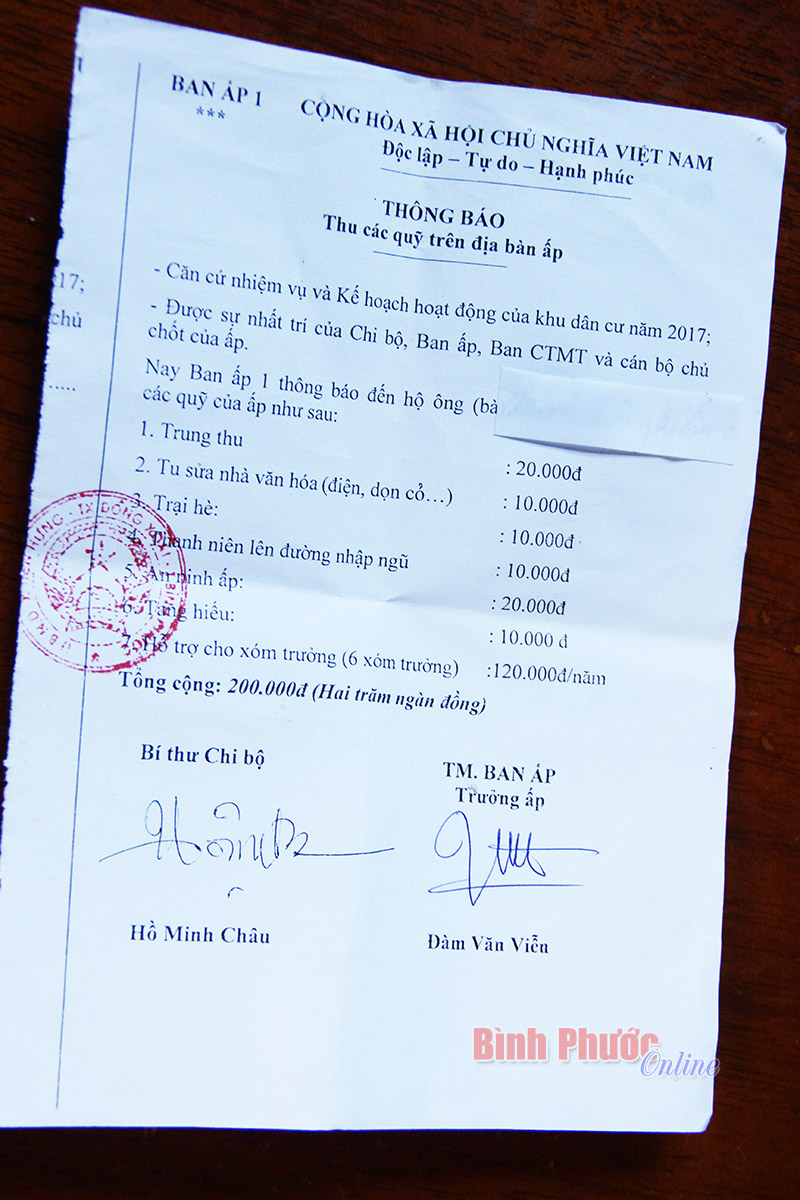 BAN ẤP 1
***
CỘNG HÒA XÃ HỘI CHỦ NGHĨA VIỆT NAM
Độc lập – Tự do – Hạnh phúc
THÔNG BÁO
Thu các quỹ trên địa bàn ấp
- Căn cứ nhiệm vụ và Kế hoạch hoạt động của khu dân cư năm 2017;
- Được sự nhất trí của Chi bộ, Ban ấp, Ban CTMT và cán bộ chủ
chốt của ấp.
Nay Ban ấp 1 thông báo đến hộ ông (bà
các quỹ của ấp như sau:
1. Trung thu : 20.000đ
2. Tu sửa nhà văn hóa (điện, dọn cỏ…) : 10.000đ
3. Trại hè: : 10.000đ
4. Thanh niên lên đường nhập ngũ : 10.000đ
5. An ninh ấp: : 20.000đ
6. Tang hiếu: : 10.000 đ
7. Hỗ trợ cho xóm trưởng (6 xóm trưởng) :120.000đ/năm
Tổng cộng: 200.000đ (Hai trăm ngàn đồng)
Bí thư Chi bộ
TM. BAN ẤP
Trưởng ấp
Hồ Minh Châu
Đàm Văn Viễn
17;
chủ
.....
Bình Phước
Online